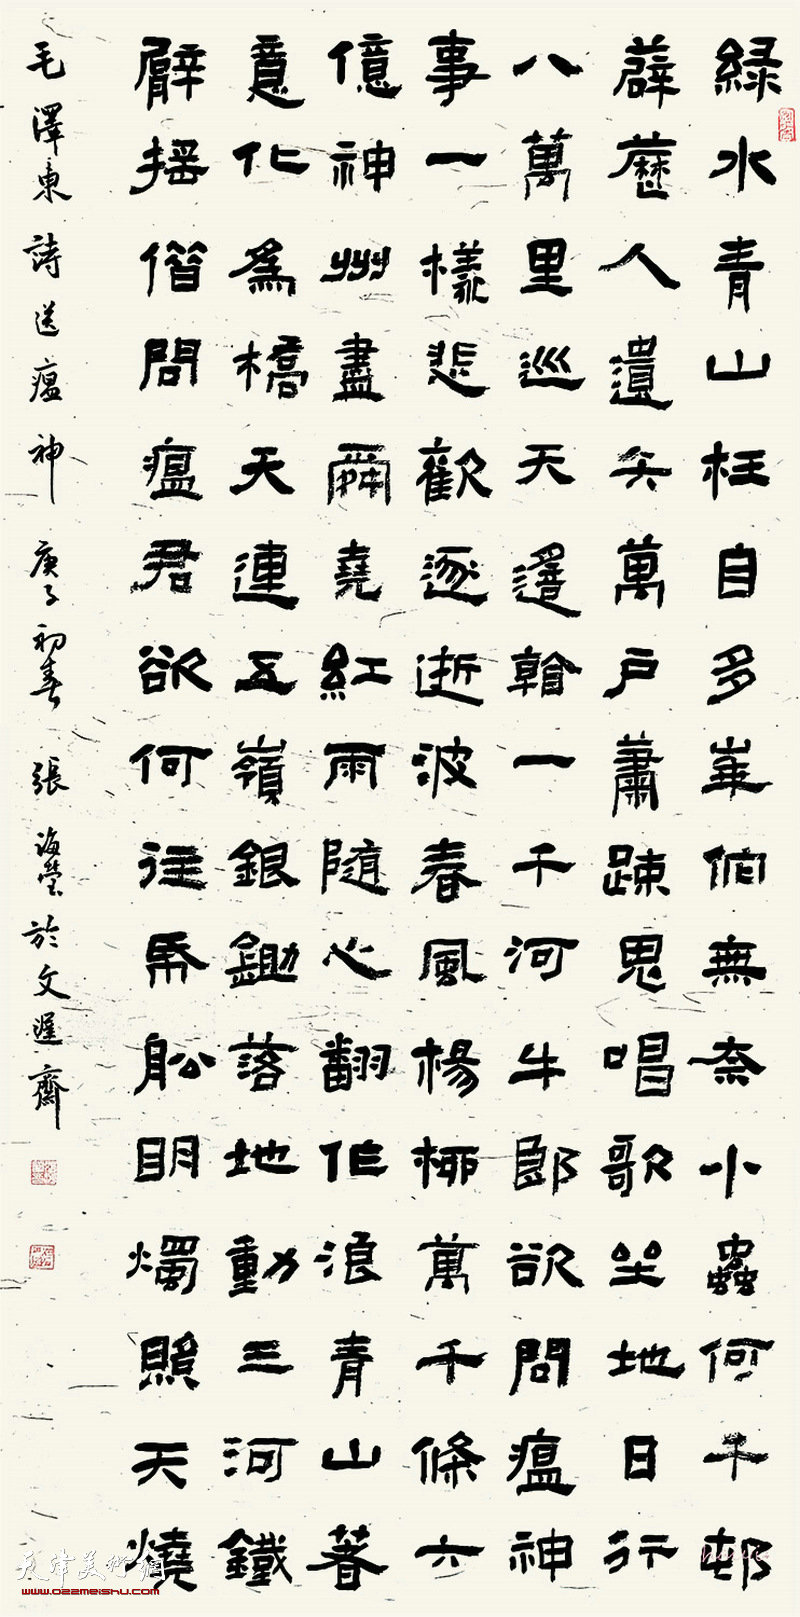 綠水青山枉自多崋佗無奈小蟲何千邨
薜藶人遺矢萬戶蕭疎鬼唱歌坐地日行
八萬里巡天遙看一千河牛郎欲問瘟神
事一樣悲歡逐逝波春風楊柳萬千條六
億神州盡舜堯紅雨隨心翻作浪青山著
意化爲橋天連五嶺銀鋤落地動三河鐵
臂搖借問瘟君欲何往帋船明燭照天燒
毛澤東詩送瘟神 庚子初春 張海瑩於文遲齋
天津美術網
www.022meishu.com